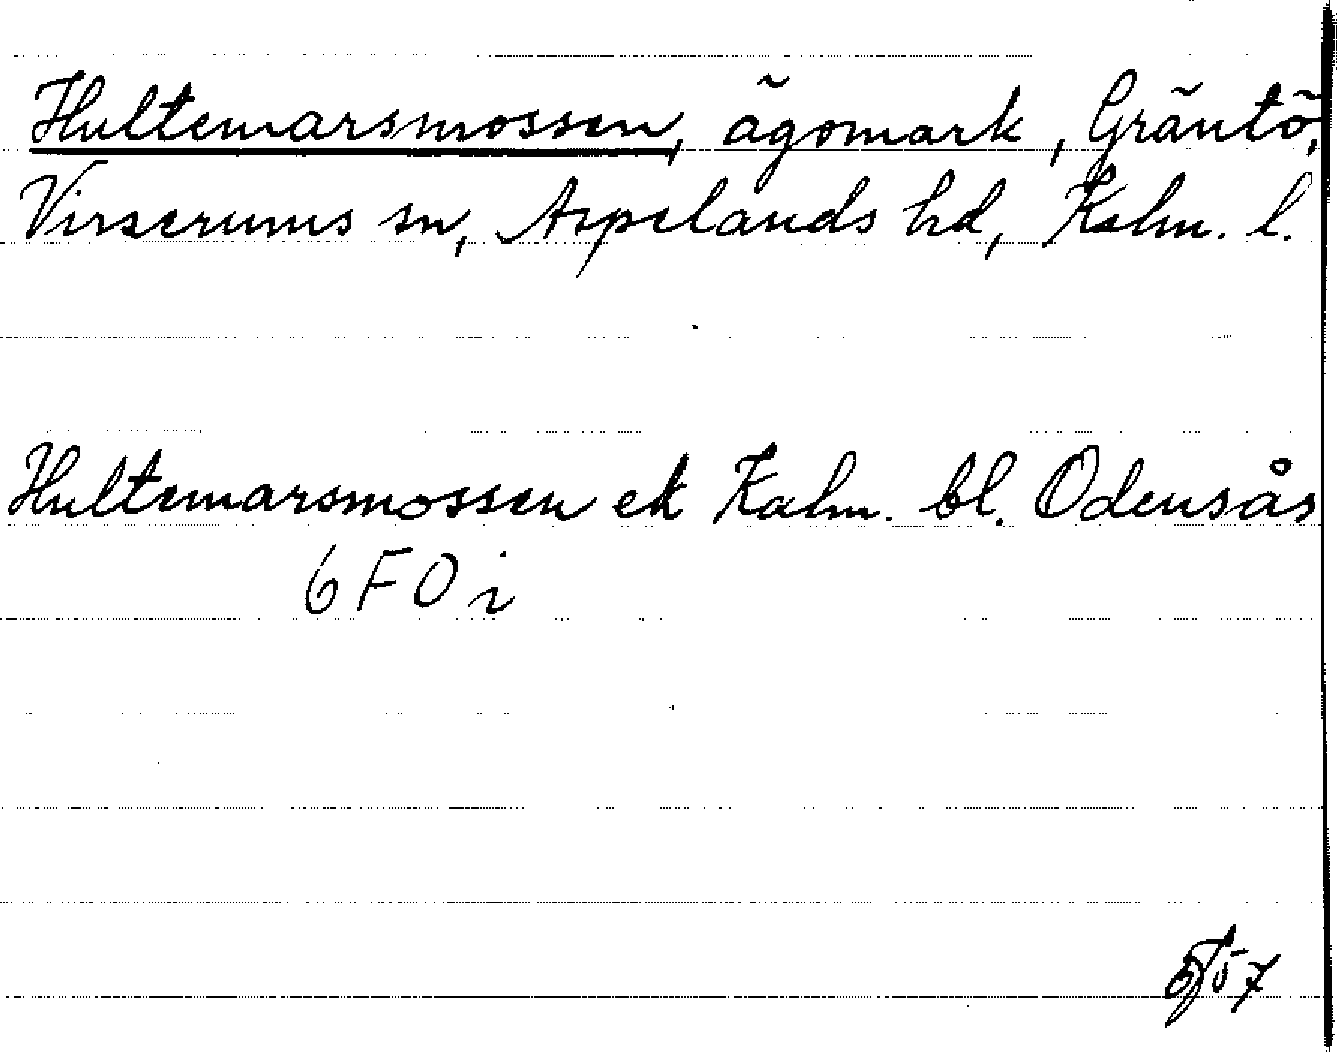 Hultemarsmossen, ägomark, Gräntö,
Virserums sn, Aspelands hd, Kalm. l.
Hultemarsmossen ek Kalm. bl. Odensås
6 F 0 i